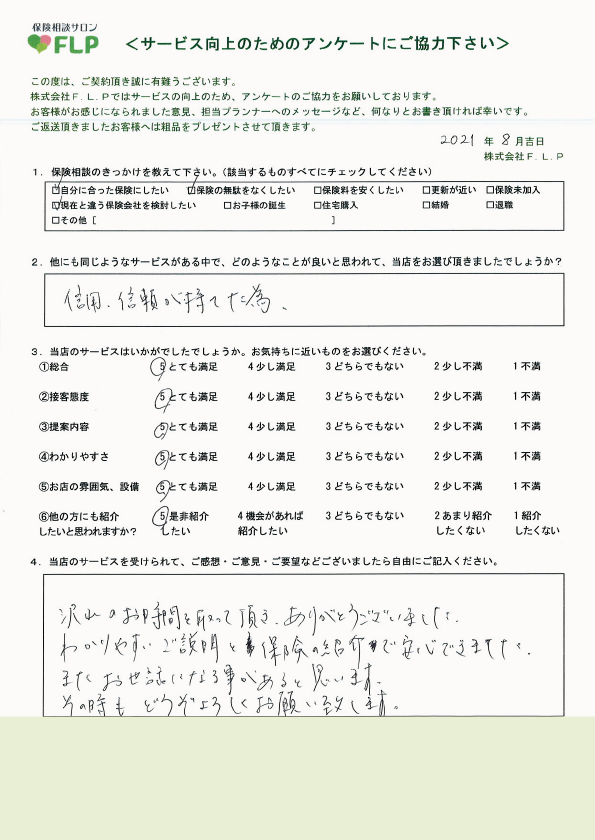 保険相談サロン
FLP
＜サービス向上のためのアンケートにご協力下さい＞
この度は、ご契約頂き誠に有難うございます。
株式会社Ｆ．Ｌ．Ｐではサービスの向上のため、アンケートのご協力をお願いしております。
お客様がお感じになられました意見、担当プランナーへのメッセージなど、何なりとお書き頂ければ幸いです。
ご返送頂きましたお客様へは粗品をプレゼントさせて頂きます。
2021 年 8 月吉日
株式会社Ｆ．Ｌ．Ｐ
１．保険相談のきっかけを教えて下さい。（該当するものすべてにチェックしてください）
☑自分に合った保険にしたい ☑保険の無駄をなくしたい □保険料を安くしたい □更新が近い □保険未加入
☑現在と違う保険会社を検討したい □お子様の誕生 □住宅購入 □結婚 □退職
□その他［ ］
２．他にも同じようなサービスがある中で、どのようなことが良いと思われて、当店をお選び頂きましたでしょうか？
信用、信頼が持てた為、
３．当店のサービスはいかがでしたでしょうか。お気持ちに近いものをお選びください。
①総合 5 とても満足 4 少し満足 3 どちらでもない 2 少し不満 1 不満
②接客態度 5 とても満足 4 少し満足 3 どちらでもない 2 少し不満 1 不満
③提案内容 5 とても満足 4 少し満足 3 どちらでもない 2 少し不満 1 不満
④わかりやすさ 5 とても満足 4 少し満足 3 どちらでもない 2 少し不満 1 不満
⑤お店の雰囲気、設備 5 とても満足 4 少し満足 3 どちらでもない 2 少し不満 1 不満
⑥他の方にも紹介 5 是非紹介 4 機会があれば 3 どちらでもない 2 あまり紹介 1 紹介
したいと思われますか？ したい 紹介したい したくない したくない
４．当店のサービスを受けられて、ご感想・ご意見・ご要望などございましたら自由にご記入ください。
沢山のお時間を取って頂き、ありがとうございました。
わかりやすいご説明と保険の紹介で安心できました。
またお世話になる事があると思います。
その時もどうぞよろしくお願い致します。